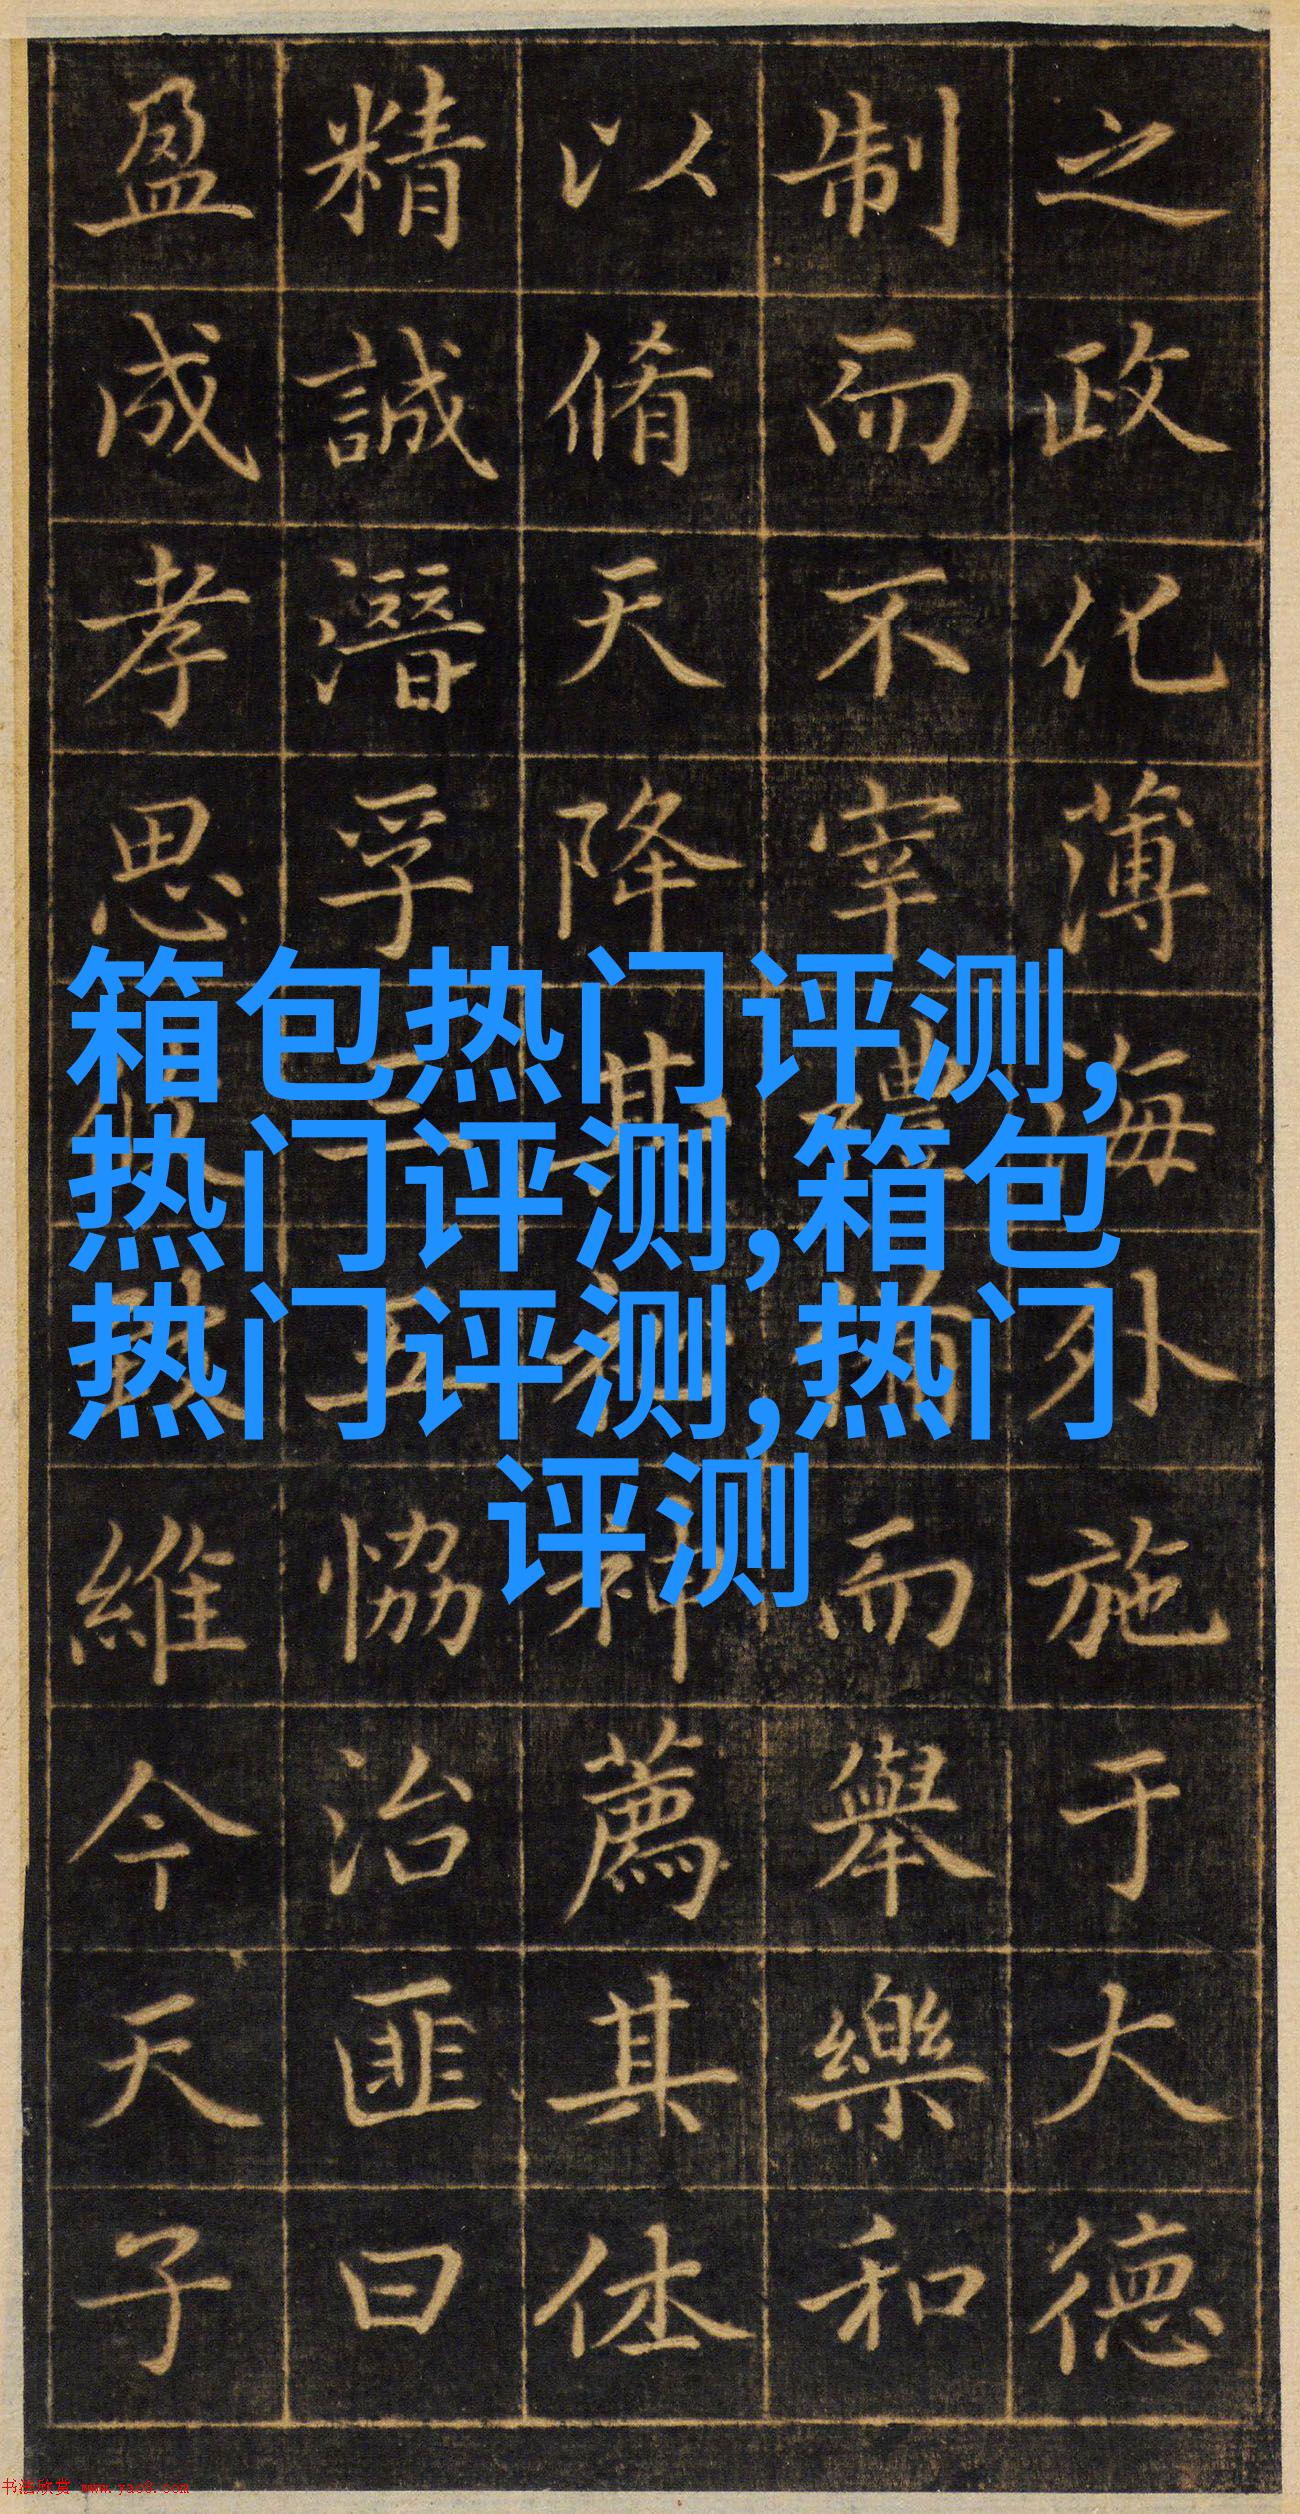 之政化薄海外施于大德
制而不宰禮備而舉樂和
以脩天降其神薦其休
精誠潛孚三五恊治匪曰
盈成孝思維今天子
箱包热门评测,
热门评测,箱包
热门评测,热门
评测
书法欣赏 www.yac8.com